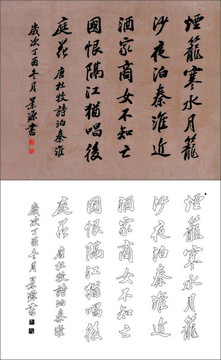 煙籠寒水月籠
沙夜泊秦淮近
酒家商女不知亡
國恨隔江猶唱後
庭花 唐杜牧詩泊秦淮
歲次丁酉冬月 景源書
煙籠寒水月籠
沙夜泊秦淮近
酒家商女不知亡
國恨隔江猶唱後
庭花 唐杜牧詩泊秦淮
歲次丁酉冬月 景源書